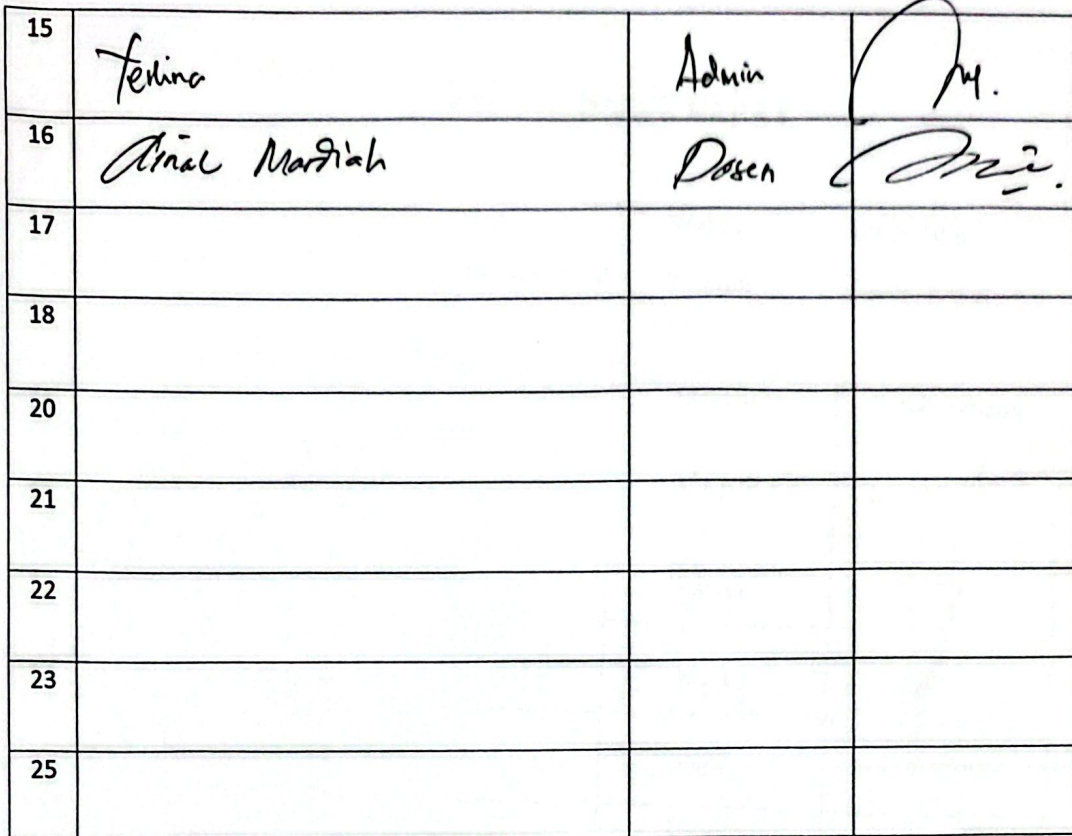 15 Terlina Admin
16 Ainal Mardiah Dosen
17
18
20
21
22
23
25